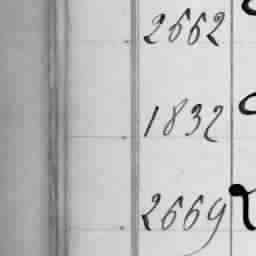 2662
1832
2669